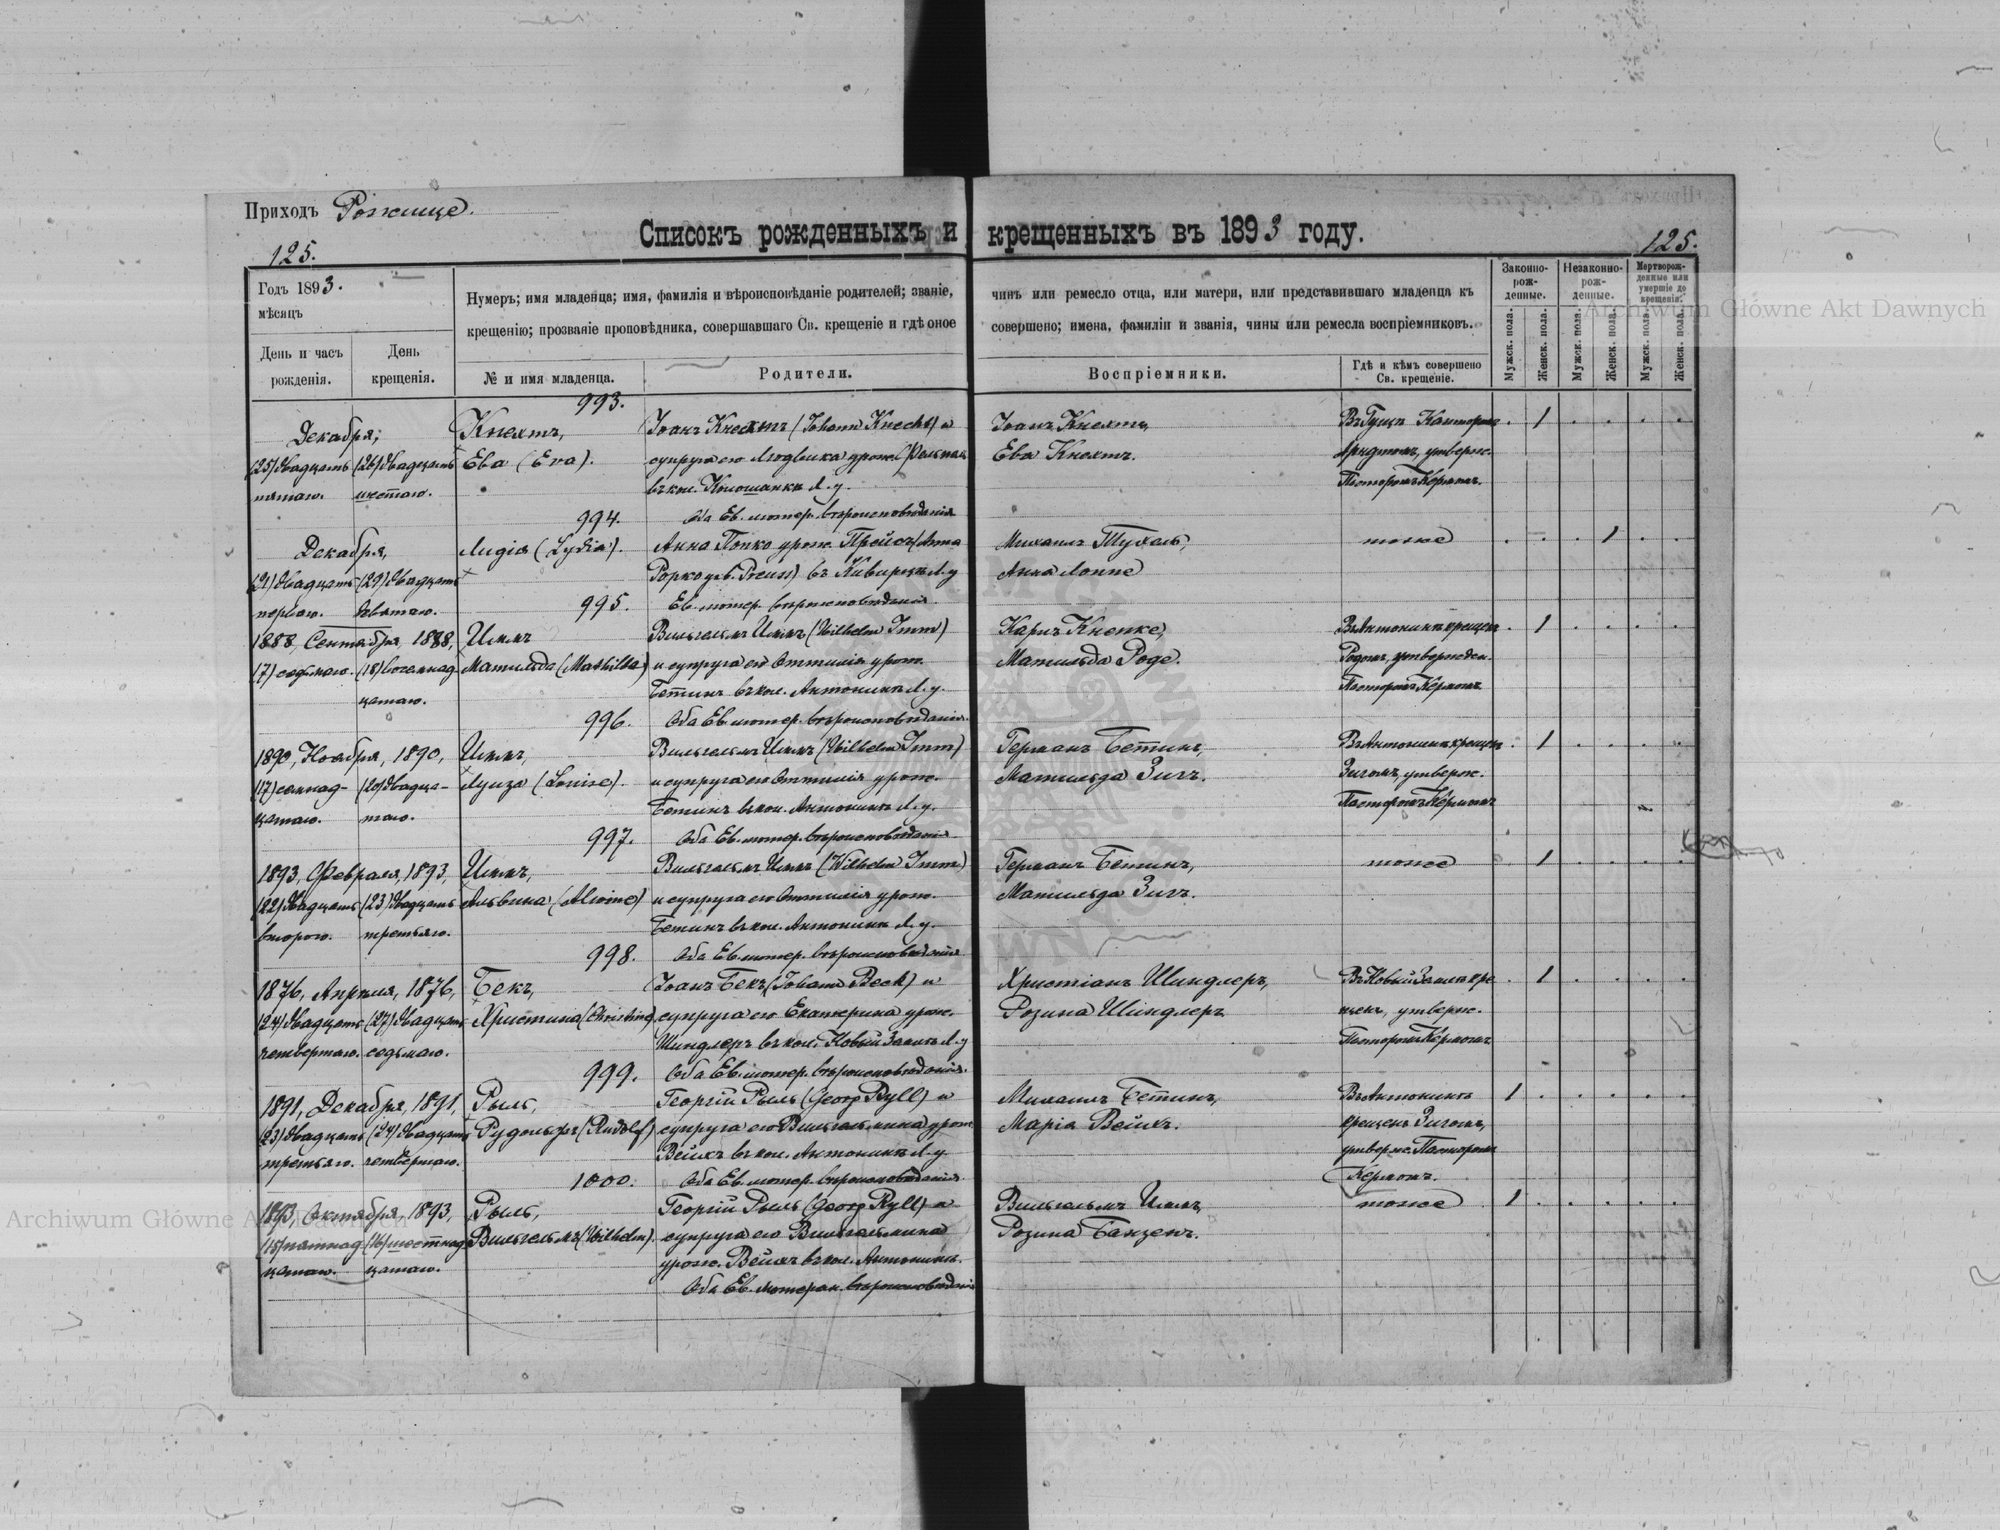 Приходъ Рожище.
Списокъ рожденныхъ и крещенныхъ въ 1893 году.
125.
125.
Годъ 1893.
мѣсяцъ
День и часъ рожденія.
День крещенія.
Нумеръ; имя младенца; имя, фамилія и вѣроисповѣданіе родителей; званіе, чинъ или ремесло отца, или матери, или представившаго младенца къ
крещенію; прозваніе проповѣдника, совершавшаго Св. крещеніе и гдѣ оное совершено; имена, фамиліи и званія, чины или ремесла воспріемниковъ.
№ и имя младенца.
Родители.
Воспріемники.
Гдѣ и кѣмъ совершено Св. крещеніе.
Законно-рож-денные.
Незаконно-рож-денные.
Мертворож-денные или умершіе до крещенія.
Мужск. пола.
Женск. пола.
Мужск. пола.
Женск. пола.
Мужск. пола.
Женск. пола.
993.
Декабря,
Кнехтъ,
Іоанъ Кнехтъ (Johann Knecht) и
Іоанъ Кнехтъ,
1
(25) двадцать (26) двадцать Ева (Eva).
супруга его Людвика урож.
Ева Кнехтъ.
утверж.
пятаго. шестаго.
въ кол. Л. у.
Пасторомъ Кермомъ.
994.
Оба Ев. лютер. вѣроисповѣданія
Декабря,
Лидія (Lydia).
Анна Попко урож. Прейсъ (Anna
Михаилъ Тухель,
тоже
1
(21) двадцать (29) двадцать
Popko geb. Preuss) въ Киверцы Л. у
Анна Лонне
перваго. девятаго.
995.
Ев. лютер. вѣроисповѣданія.
1888, Сентября, 1888,
Иммъ
Вильгельмъ Иммъ (Wilhelm Imm)
Карлъ Кнепке,
Въ Антонинѣ крещен.
1
(7) седьмаго. (18) восемнад- Матильда (Mathilda)
и супруга его Оттилія урож.
Матильда Роде.
Родомъ, утвержден.
цатаго.
Бетинъ въ кол. Антонинѣ Л. у.
Пасторомъ Кермомъ
996.
Оба Ев. лютер. вѣроисповѣданія.
1890, Ноября, 1890,
Иммъ,
Вильгельмъ Иммъ (Wilhelm Imm)
Германъ Бетинъ,
Въ Антонинѣ крещен
1
(17) семнад- (20) двадца- Луиза (Louise).
и супруга его Оттилія урож.
Матильда Зигъ.
Зигомъ, утверж.
цатаго. таго.
Бетинъ въ кол. Антонинѣ Л. у.
Пасторомъ Кермомъ
997.
Оба Ев. лютер. вѣроисповѣданія
1893, Февраля, 1893,
Иммъ,
Вильгельмъ Иммъ (Wilhelm Imm)
Германъ Бетинъ,
тоже
1
(22) двадцать (23) двадцать Альвина (Alwine)
и супруга его Оттилія урож.
Матильда Зигъ.
второго. третьяго.
Бетинъ въ кол. Антонинѣ Л. у.
998.
Оба Ев. лютер. вѣроисповѣданія
1876, Апрѣля, 1876,
Бекъ,
Іоанъ Бекъ (Johann Beck) и
Христіанъ Шиндлеръ,
Въ Новый кре
1
(24) двадцать (27) двадцать Христина (Christine)
супруга его Екатерина урож.
Розина Шиндлеръ
щен, утверж.
четвертаго. седьмаго.
Шиндлеръ въ кол. Новый Л. у
Пасторомъ Кермомъ
999.
Оба Ев. лютер. вѣроисповѣданія.
1891, Декабря, 1891,
Рыль,
Георгій Рыль (Georg Ryll) и
Михаилъ Бетинъ,
Въ Антонинѣ
1
(23) двадцать (24) двадцать Рудольфъ (Rudolf)
супруга его Вильгельмина урож
Марія Вейхъ.
крещенъ Зигомъ,
третьяго. четвертаго.
Вейхъ въ кол. Антонинѣ Л. у
утверж. Пасторомъ
1000.
Оба Ев. лютер. вѣроисповѣданія
Кермомъ.
1893, Октября, 1893,
Рыль,
Георгій Рыль (Georg Ryll) и
Вильгельмъ Иммъ,
тоже
1
(15) пятнад (16) шестнад Вильгельмъ (Wilhelm).
супруга его Вильгельмина
Розина Банзенъ.
цатаго. цатаго.
урож. Вейхъ въ кол. Антонинѣ.
Оба Ев. лютеран. вѣроисповѣданія
Archiwum Główne Akt Dawnych
Archiwum Główne